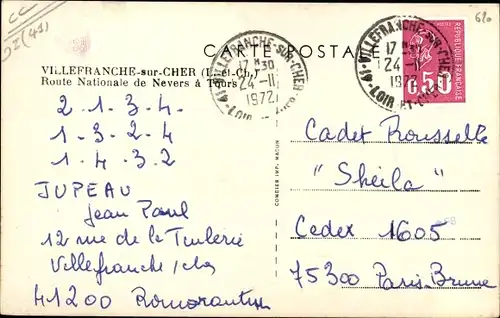 CC
DZ (41)
680
CARTE POSTALE
VILLEFRANCHE-sur-CHER (L.-et-Ch.)
Route Nationale de Nevers à Tours
41-VILLEFRANCHE-SUR-CHER
17 H 30
24-11
1972
LOIR-ET-CHER
41-VILLEFRANCHE-SUR-CHER
17 H 30
24-11
1972
LOIR-ET-CHER
0,50
REPUBLIQUE FRANÇAISE
2.1.3.4.
1.3.2.4
1.4.3.2
JUPEAU
Jean Paul
12 rue de la Tuilerie
Villefranche/cher
41200 Romorantin
COMBIER IMP. MACON
Cadet Rousselle
"Sheila"
Cedex 1605
75300 Paris-Brune